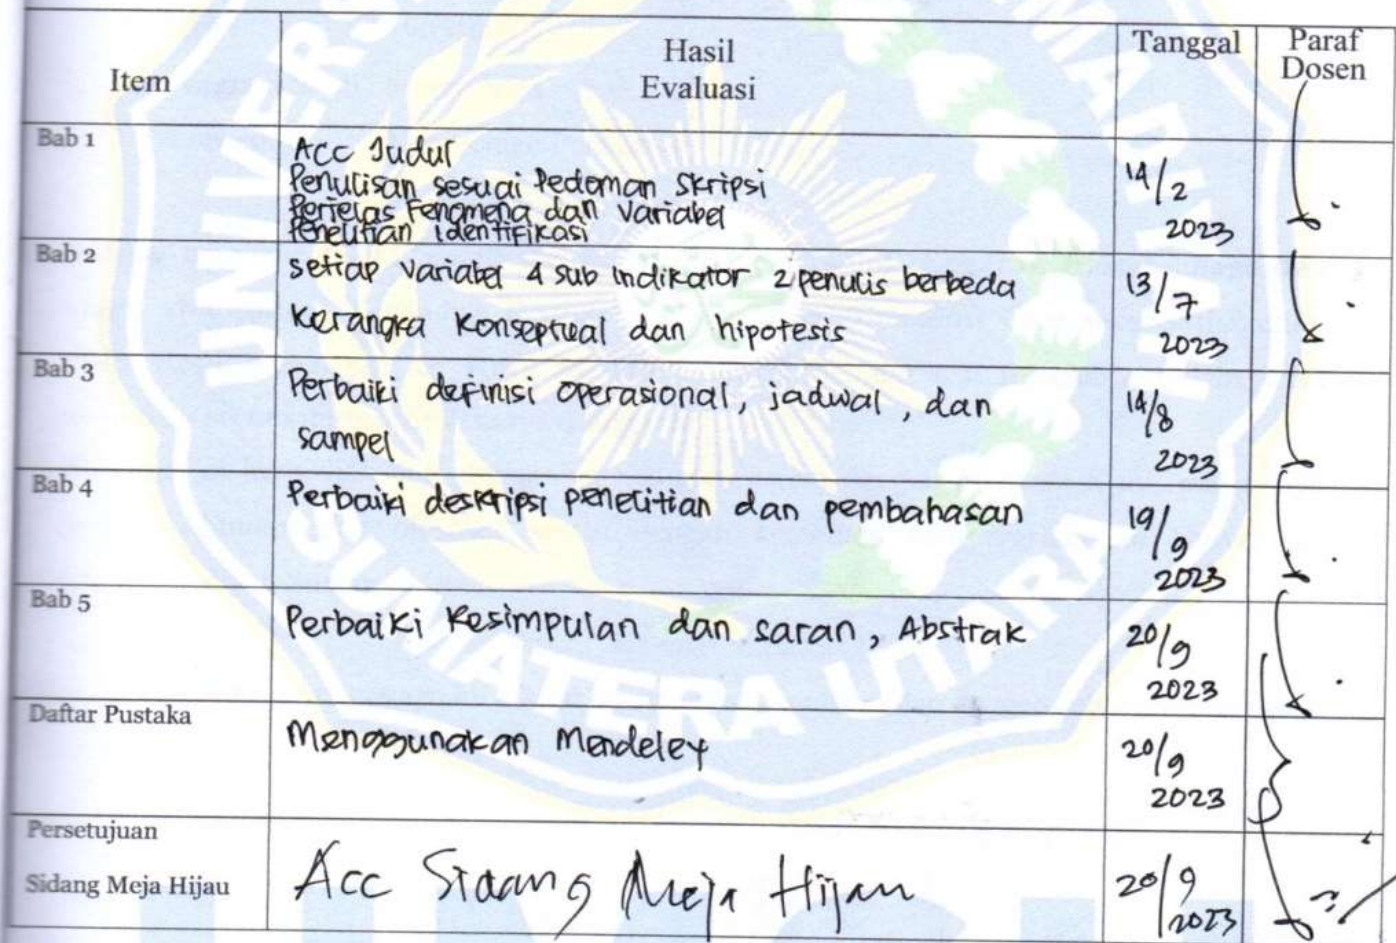 Item Hasil Evaluasi Tanggal Paraf Dosen
Bab 1
Acc Judul
Penulisan sesuai Pedoman Skripsi
Perjelas Fenomena dan variabel
Penelitian identifikasi
14/2 2023
Bab 2
setiap variabel 4 sub indikator 2 penulis berbeda
Kerangka Konseptual dan hipotesis
13/7 2023
Bab 3
Perbaiki definisi operasional, jadwal, dan
sampel
14/8 2023
Bab 4
Perbaiki deskripsi penelitian dan pembahasan
19/9 2023
Bab 5
Perbaiki Kesimpulan dan saran, Abstrak
20/9 2023
Daftar Pustaka
Menggunakan Mendeley
20/9 2023
Persetujuan
Sidang Meja Hijau
Acc Sidang Meja Hijau
20/9 2023
SUMATERA UTARA